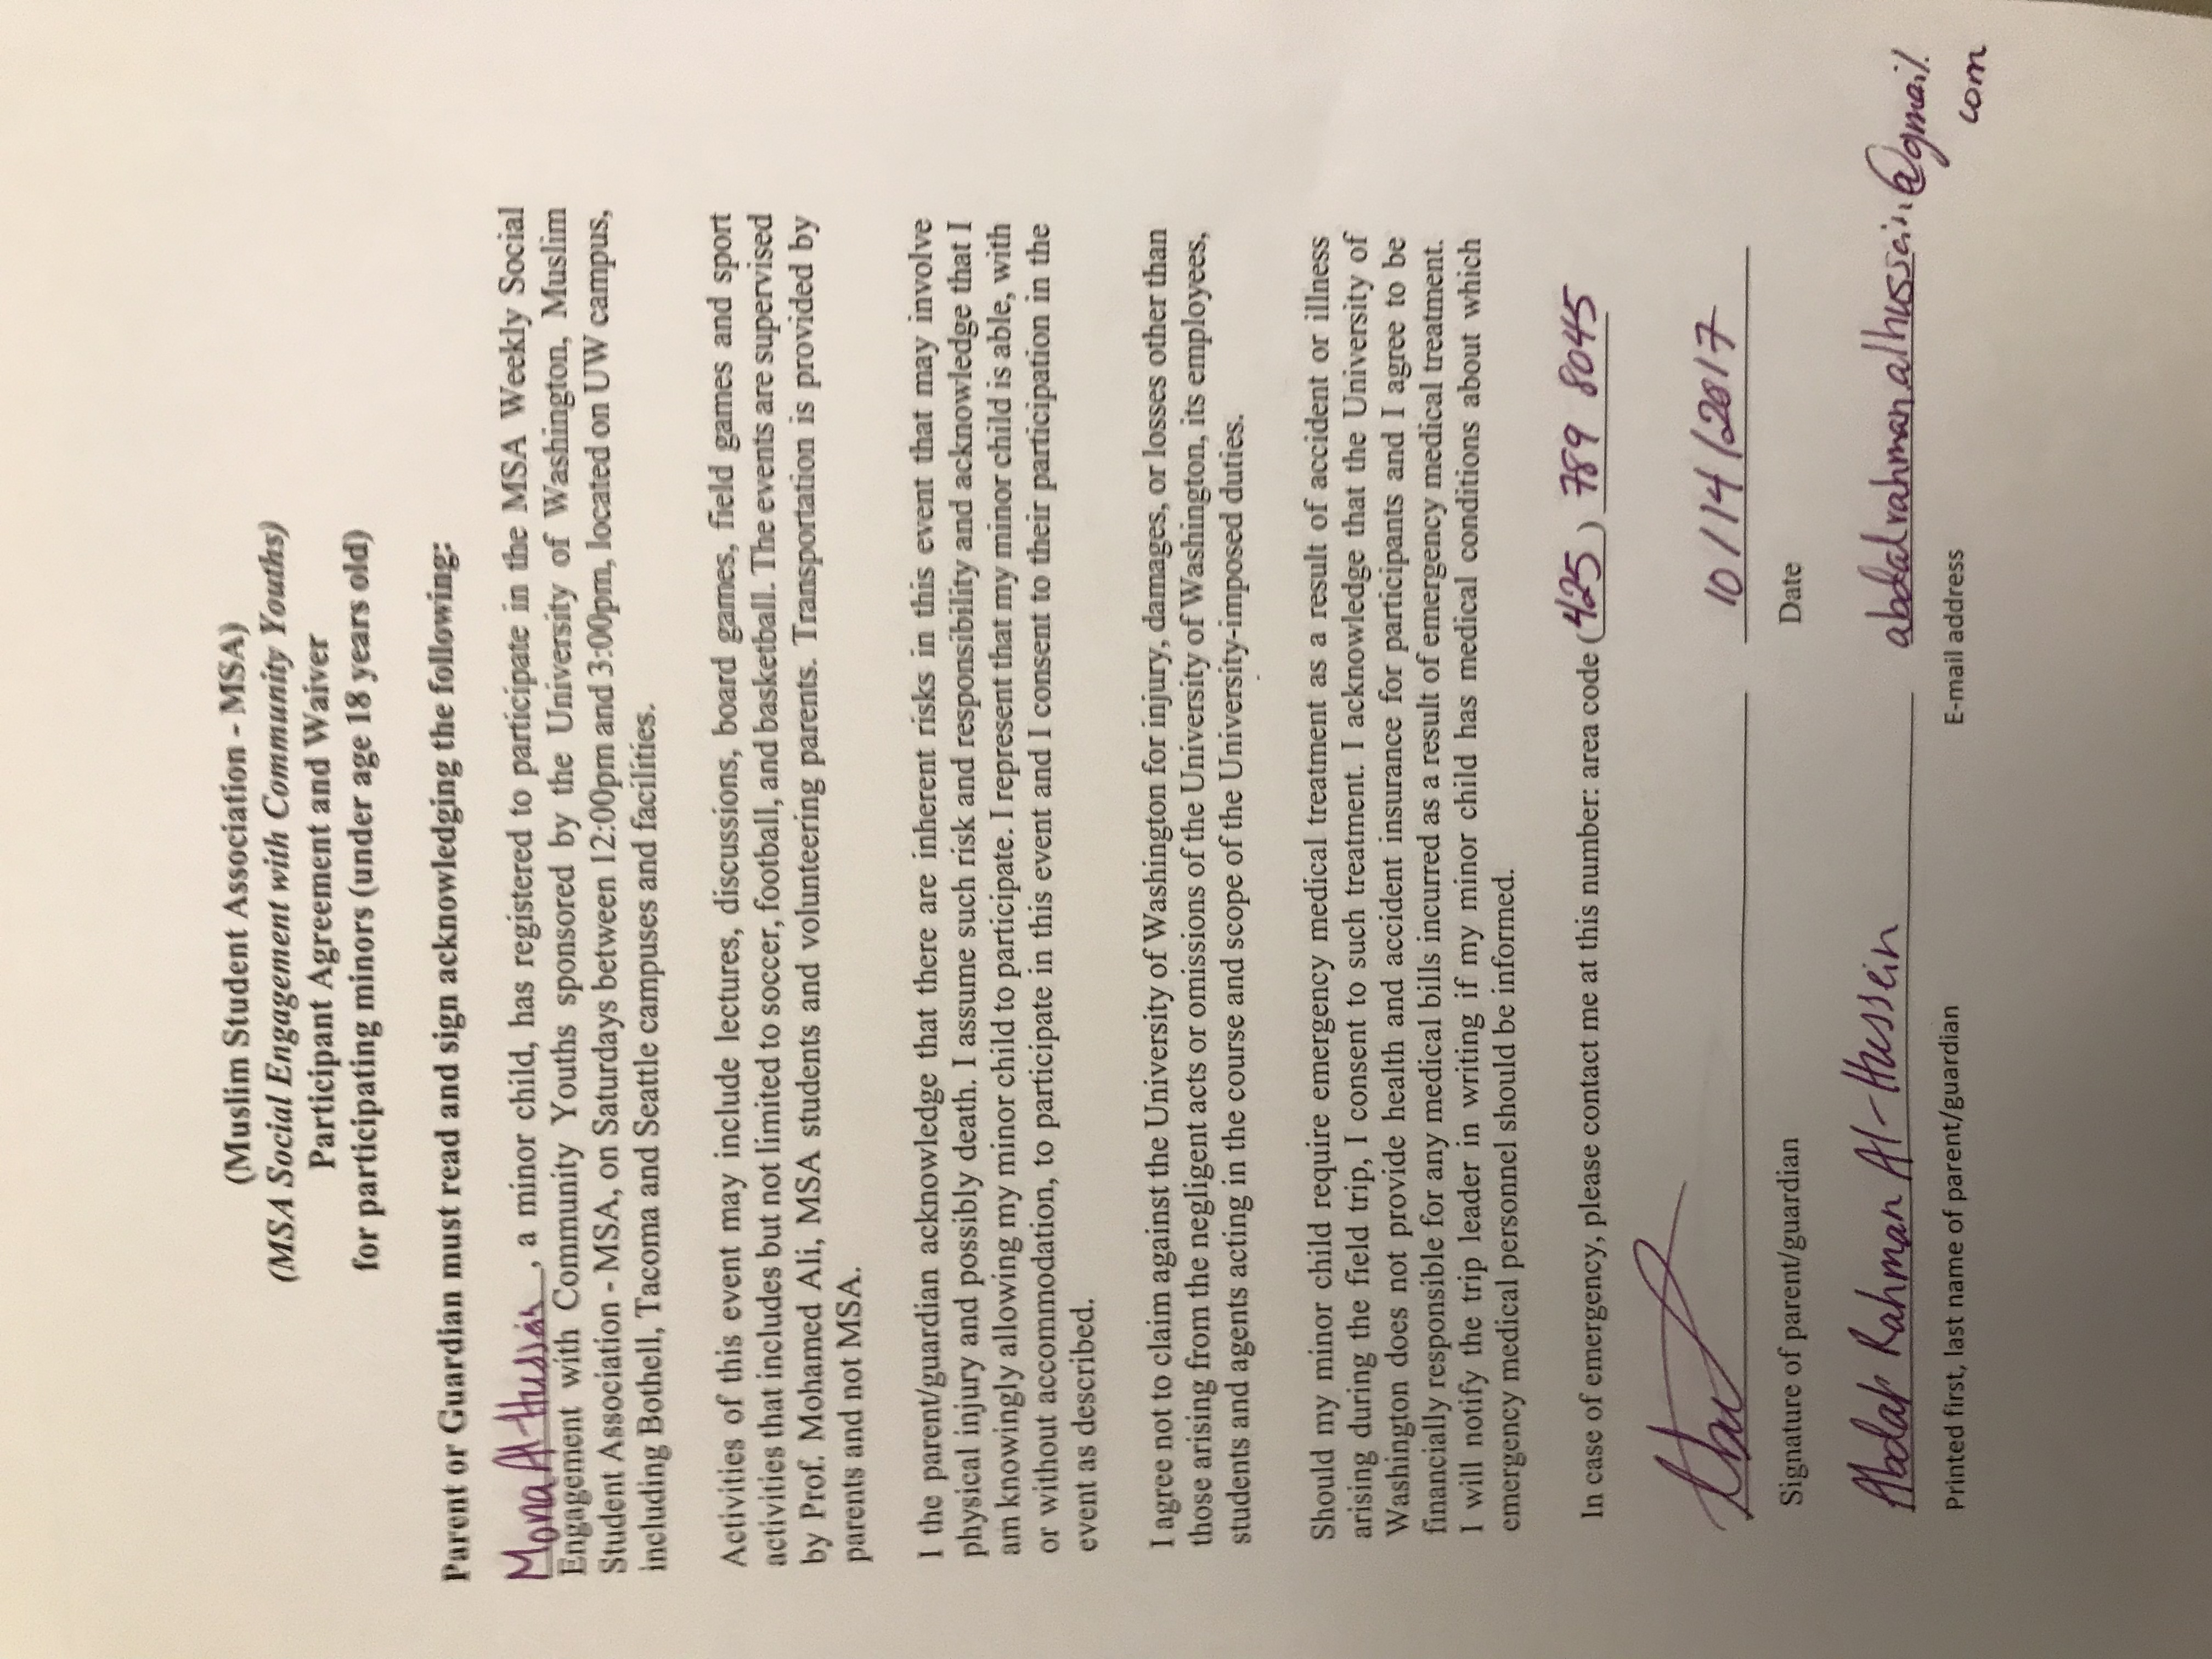 (Muslim Student Association - MSA)
(MSA Social Engagement with Community Youths)
Participant Agreement and Waiver
for participating minors (under age 18 years old)
Parent or Guardian must read and sign acknowledging the following:
Mona Al-Hussain, a minor child, has registered to participate in the MSA Weekly Social
Engagement with Community Youths sponsored by the University of Washington, Muslim
Student Association - MSA, on Saturdays between 12:00pm and 3:00pm, located on UW campus,
including Bothell, Tacoma and Seattle campuses and facilities.
Activities of this event may include lectures, discussions, board games, field games and sport
activities that includes but not limited to soccer, football, and basketball. The events are supervised
by Prof. Mohamed Ali, MSA students and volunteering parents. Transportation is provided by
parents and not MSA.
I the parent/guardian acknowledge that there are inherent risks in this event that may involve
physical injury and possibly death. I assume such risk and responsibility and acknowledge that I
am knowingly allowing my minor child to participate. I represent that my minor child is able, with
or without accommodation, to participate in this event and I consent to their participation in the
event as described.
I agree not to claim against the University of Washington for injury, damages, or losses other than
those arising from the negligent acts or omissions of the University of Washington, its employees,
students and agents acting in the course and scope of the University-imposed duties.
Should my minor child require emergency medical treatment as a result of accident or illness
arising during the field trip, I consent to such treatment. I acknowledge that the University of
Washington does not provide health and accident insurance for participants and I agree to be
financially responsible for any medical bills incurred as a result of emergency medical treatment.
I will notify the trip leader in writing if my minor child has medical conditions about which
emergency medical personnel should be informed.
In case of emergency, please contact me at this number: area code (425) 789 8045
10/14/2017
Signature of parent/guardian Date
Abdal Rahman Al-Hussein abdalrahman.alhussein@gmail.
com
Printed first, last name of parent/guardian E-mail address